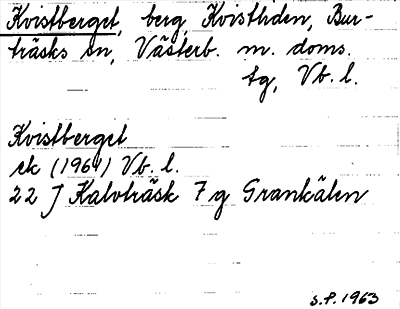 Kvistberget, berg, Kvistliden, Bur-
träsks sn, Västerb. m. doms.
tg, Vb. l.
Kvistberget
ek (1961) Vb. l.
22 J Kalvträsk 7 g Grankälen
S.P. 1963